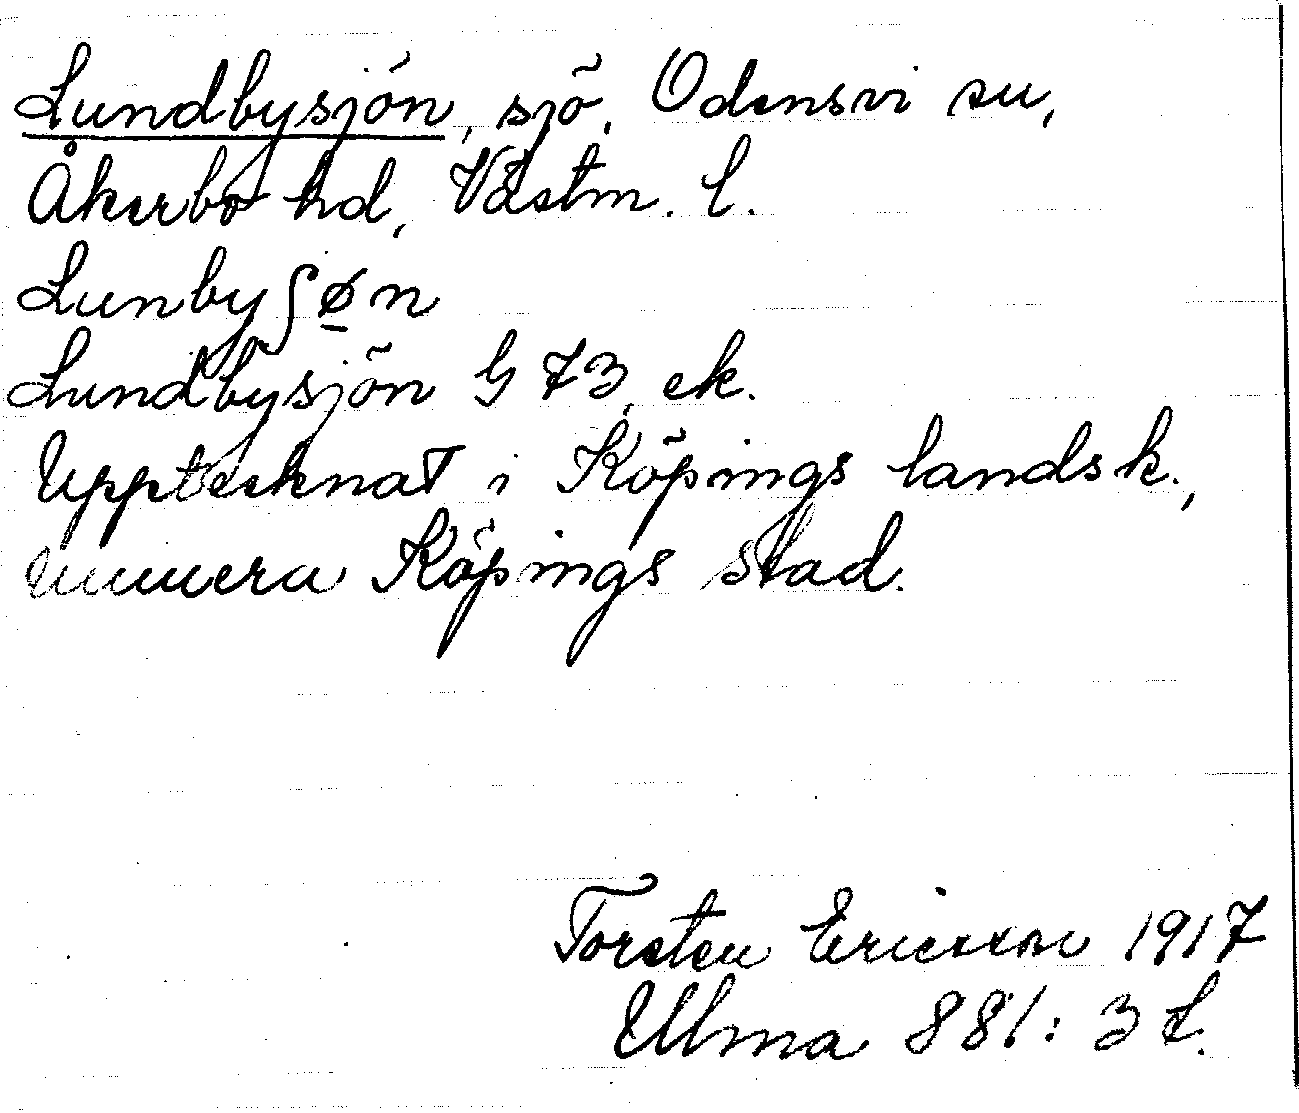 Lundbysjön, sjö, Odensvi sn,
Åkerbo hd, Västm. l.
Lunbyʃø̱n
Lundbysjön G 73, ek.
Upptecknat i Köpings landsk.,
numera Köpings stad.
Torsten Ericsson 1917
Ulma 881: 3 t.